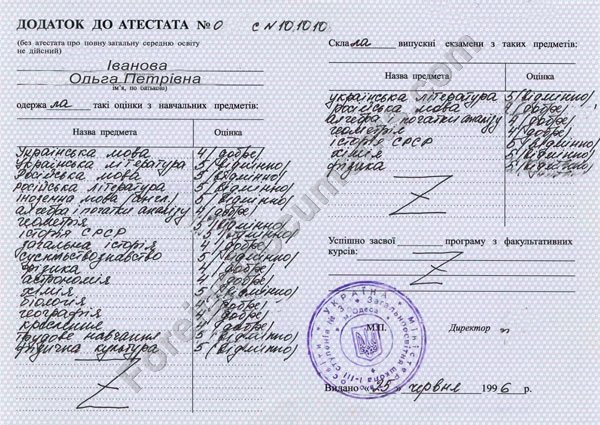 ДОДАТОК ДО АТЕСТАТА № 0 с N 101010
(без атестата про повну загальну середню освіту
не дійсний)
Іванова
Ольга Петрівна
ім'я, по батькові)
одержа ла такі оцінки з навчальних предметів:
Назва предмета Оцінка
Українська мова 4 /добре/
Українська література 5 /відмінно/
Російська мова 4 /добре/
російська література 5 /відмінно/
Іноземна мова /англ./ 5 /відмінно/
алгебра і початки аналізу 4 /добре/
геометрія
історія СРСР 5 /відмінно/
загальна історія 4 /добре/
суспільствознавство 5 /відмінно/
фізика 4 /добре/
астрономія 4 /добре/
хімія 5 /відмінно/
біологія
географія 4 /добре/
креслення 4 /добре/
трудове навчання 5 /відмінно/
фізична культура 5 /відмінно/
Z
Скла ла випускні екзамени з таких предметів:
Назва предмета Оцінка
українська література 5 /відмінно/
російська мова
алгебра і початки аналізу
геометрія 4 /добре/
історія СРСР 5 /відмінно/
хімія
фізика
Z
Успішно засвої програму з факультативних
курсів:
Z
УКРАЇНА
Міністерство освіти
Загальноосвітня школа I-III ступенів № 3
Одеса
М.П. Директор
Видано «25» червня 1996 р.
Foreign Documents.com